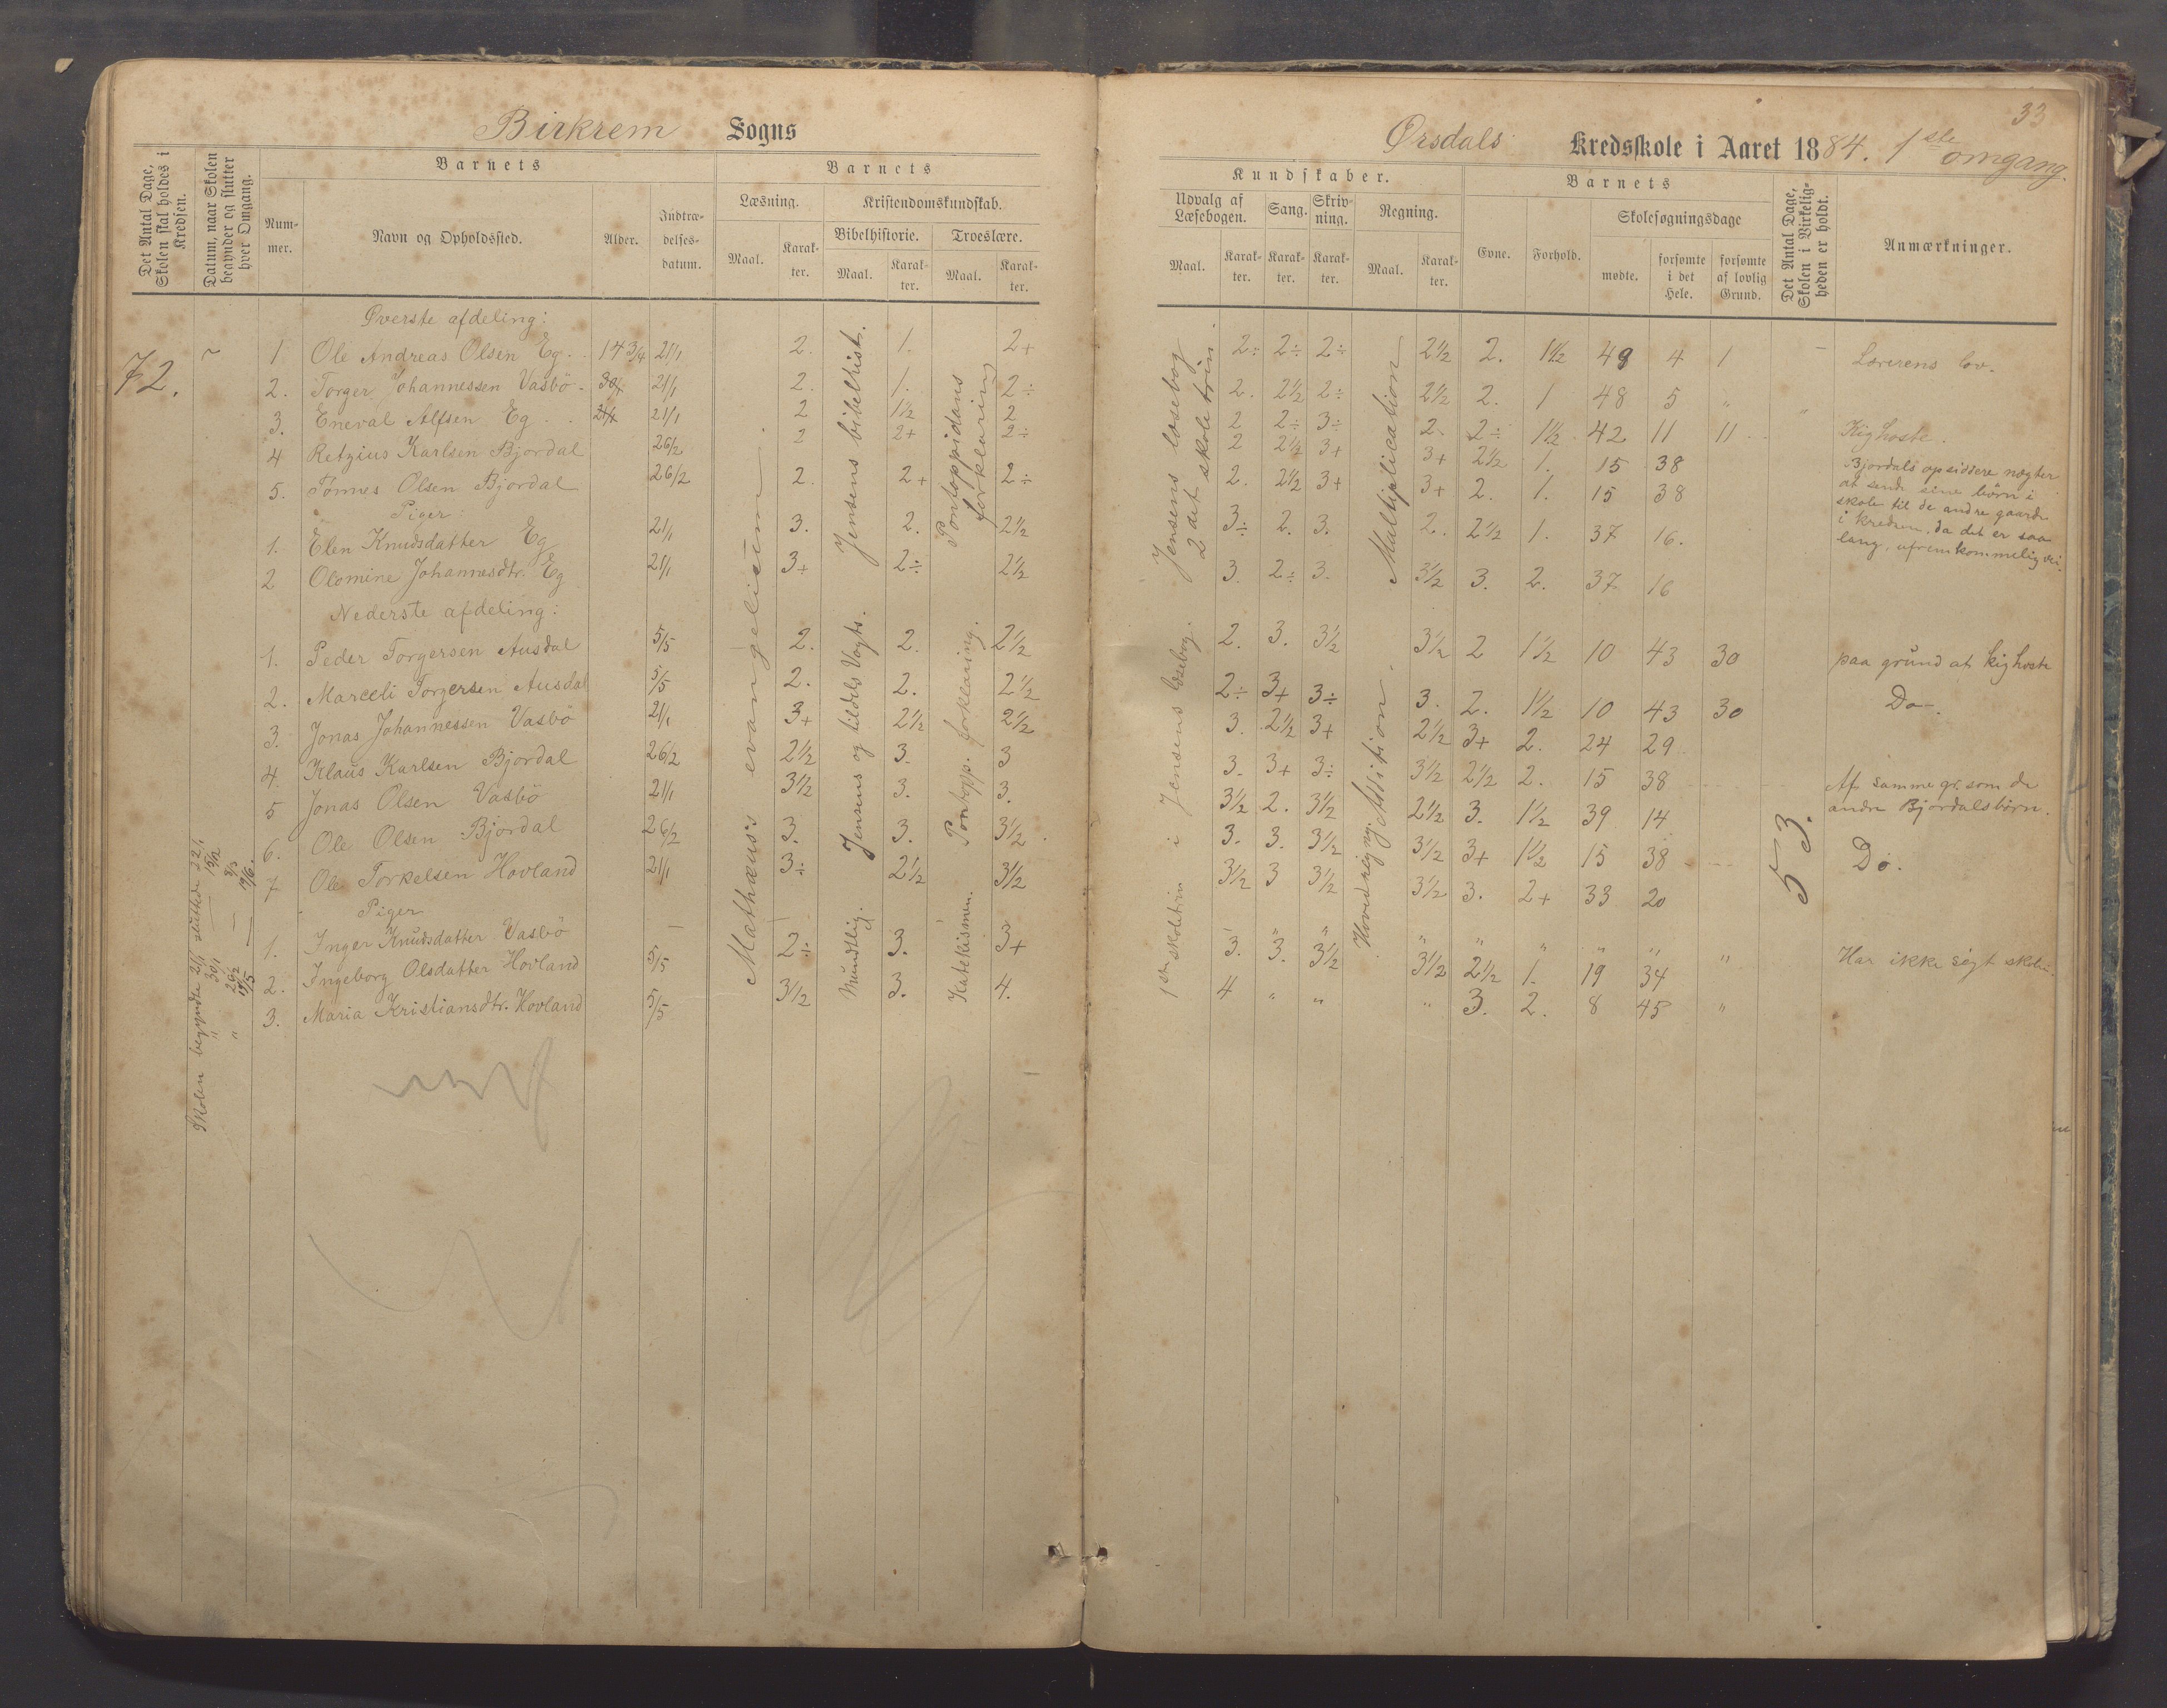 33
Birkrem Sogns
Ørsdals Kredsskole i Aaret 1884. 1ste omgang.
Det Antal Dage, Skolen skal holdes i Kredsen.
Datum, naar Skolen begynder og slutter hver Omgang.
Barnets
Nummer.
Navn og Opholdssted.
Alder.
Indtrædelsesdatum.
Barnets
Læsning.
Maal.
Karakter.
Kristendomskundskab.
Bibelhistorie.
Maal.
Karakter.
Troeslære.
Maal.
Karakter.
Kundskaber.
Udvalg af Læsebogen.
Maal.
Karakter.
Sang.
Karakter.
Skrivning.
Karakter.
Regning.
Maal.
Karakter.
Barnets
Evne.
Forhold.
Skolesøgningsdage
mødte.
forsømte i det Hele.
forsømte af lovlig Grund.
Det Antal Dage, Skolen i Virkeligheden er holdt.
Anmærkninger.
72.
Skolen begyndte 21/1 sluttede 22/1
" 30/1 — 15/2
" 26/2 — 8/3
" 19/5 — 19/6.
Mathæus's evangelium.
Jensens bibelhist.
Pontoppidans forklaring
Jensens læsebog 2det skoletrin
Multiplication
Jensens og tildels Vogts.
Pontopp. forklaring.
Mundtlig.
Katekismen.
1ste skoletrin i Jensens læsebog.
Hovedregning. Addition.
53.
Øverste afdeling:
1. Ole Andreas Olsen Eg. 14 3/4 21/1 2. 1. 2+ 2÷ 2÷ 2÷ 2½ 2. 1½ 49 4 1 Lærerens lov.
2. Torger Johannessen Vasbö 21/1 2. 1. 2÷ 2. 2½ 2÷ 2½ 2. 1 48 5 "
3. Eneval Alfsen Eg 21/1 2 1½ 2 2 2÷ 3÷ 2 2÷ 1½ 42 11 11 Kighoste.
4 Retzius Karlsen Bjordal 26/2 2 2+ 2÷ 2 2½ 3+ 3+ 2½ 1. 15 38 Bjordals opsiddere nægter
5. Tönnes Olsen Bjordal 26/2 2. 2+ 2÷ 2. 2½ 3+ 3+ 2. 1. 15 38 at sende sine börn i
skole til de andre gaarde
i kredsen, da det er saa
lang, ufremkommelig vei.
Piger
1. Elen Knudsdatter Eg 21/1 3. 2. 2½ 3÷ 2. 3. 2. 2½ 1. 37 16.
2 Olemine Johannesdtr. Eg 21/1 3+ 2÷ 2½ 3. 2÷ 3. 3½ 3. 2. 37 16
Nederste afdeling:
1. Peder Torgersen Ausdal 5/5 2. 2. 2½ 2. 3. 3½ 3½ 2 1½ 10 43 30 paa grund at kighoste
2. Marceli Torgersen Ausdal 5/5 2. 2. 2½ 2÷ 3+ 3÷ 3. 2. 1½ 10 43 30 Do.
3. Jonas Johannessen Vasbö 21/1 3+ 2½ 2½ 3. 2½ 3+ 2½ 3+ 2. 24 29
4. Klaus Karlsen Bjordal 26/2 2½ 3. 3 3. 3+ 3÷ 3½ 2½ 2. 15 38 Af samme gr. som de
andre Bjordalsbörn.
5 Jonas Olsen Vasbö 21/1 3½ 3. 3. 3½ 2. 3½ 2½ 3. 1½ 39 14
6. Ole Olsen Bjordal 26/2 3. 3. 3½ 3. 3. 3½ 3½ 3+ 1½ 15 38 Do.
7 Ole Torkelsen Hovland 21/1 3÷ 2½ 3½ 3½ 3 3½ 3½ 3. 2+ 33 20
Piger
1. Inger Knudsdatter Vasbö — " " " " " " " Har ikke sögt skolen.
2. Ingeborg Olsdatter Hovland 5/5 2÷ 3. 3+ 3. 3. 3½ 3½ 2½ 1. 19 34
3. Maria Kristiansdtr. Hovland 5/5 3½ 3. 4. 4 " " " 3. 2. 8 45 "